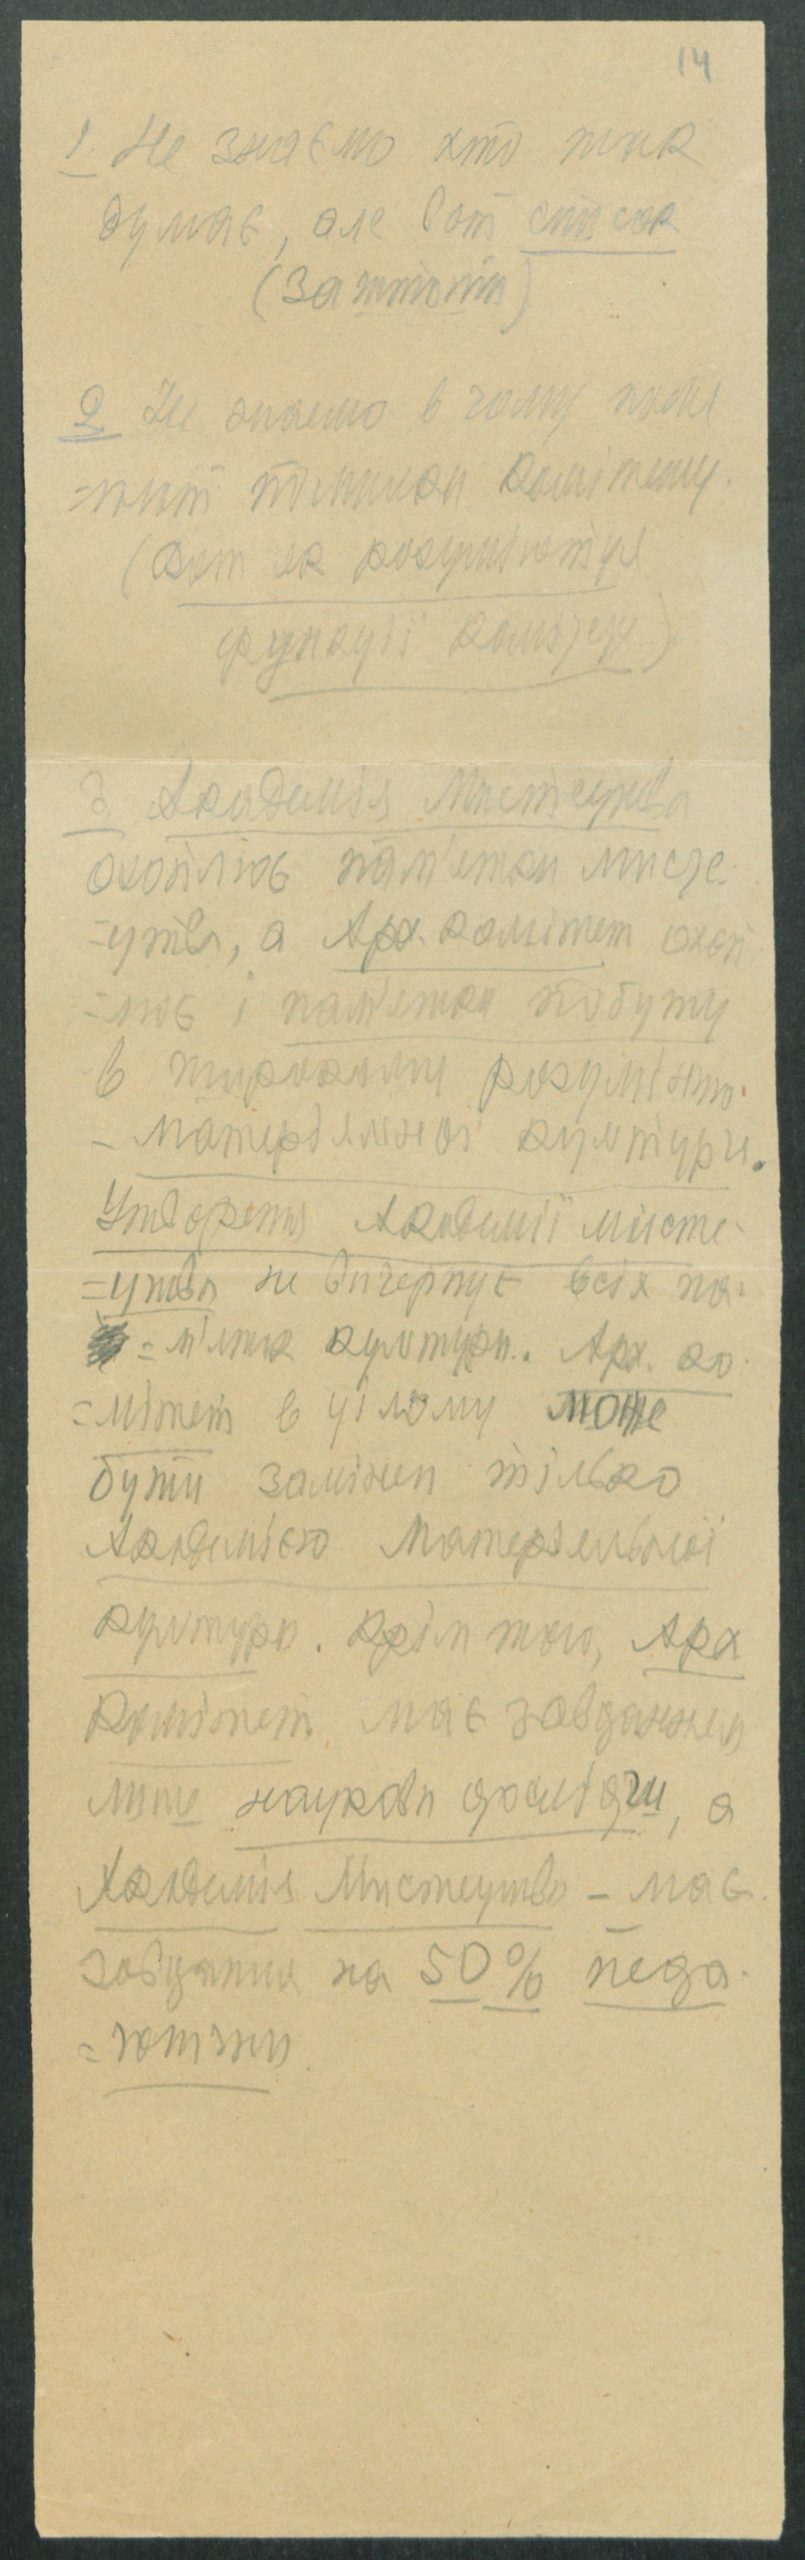 14
1. Не знаємо хто так
думає, але вот список
(Зачитати)
2 Не знаємо в чому поля
=гают помилки комітету.
(Вот як розуміются
функції комітету)
3 Академія Мистецтва
охоплює пам'ятки мисте
=цтва, а Арх. комітет охоп
=лює і пам'ятки побуту
в широкому розумінню
- Матеріяльної культури.
Утворення Академії мисте-
=цтва не вичерпує всіх па-
=м'яток культури. Арх. ко
=мітет в цілому може
бути замінен тілько
Академією Матеріяльної
культури. Крім того, Арх
комітет має завдання
лише наукові досліди, а
Академія Мистецтва – має
завдання на 50% педа-
=гогічни.